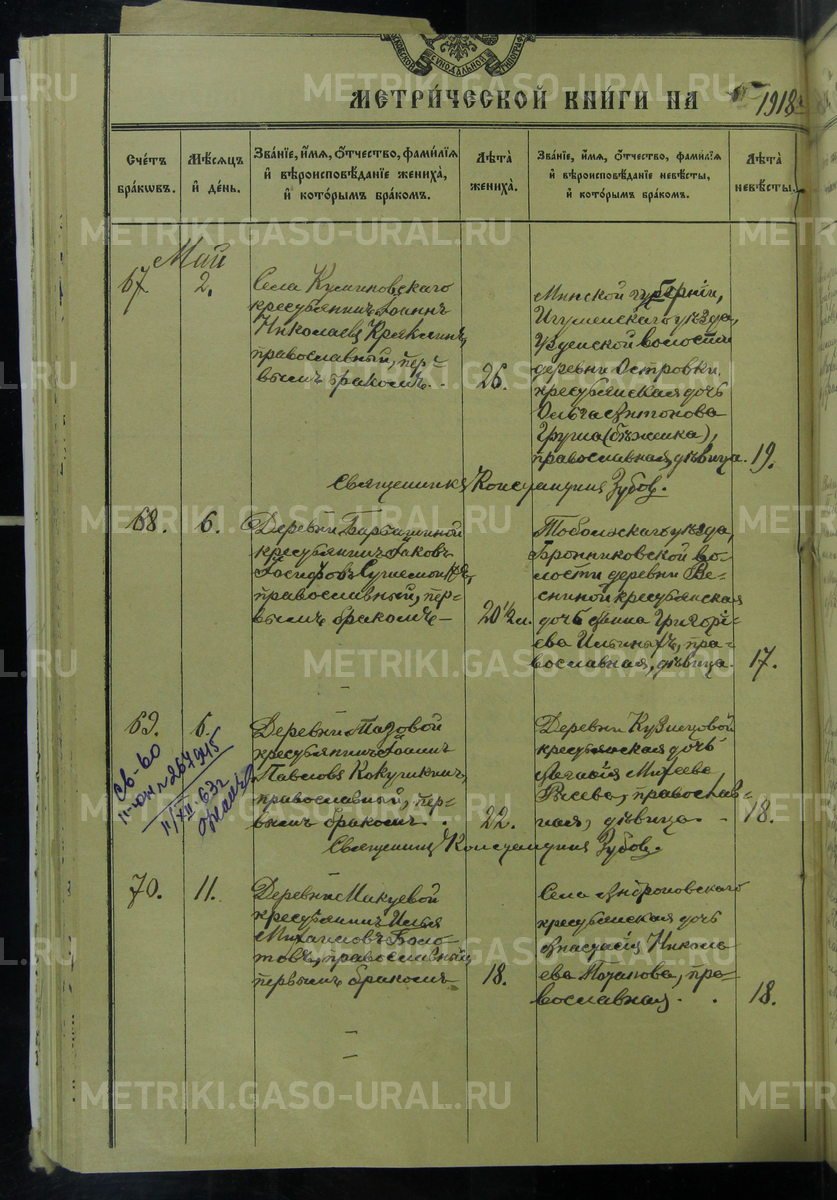 МЕТРИЧЕСКОЙ КНИГИ НА 1918 г.
Счетъ браковъ.
Мѣсяцъ и день.
Званіе, имя, отчество, фамилія и вѣроисповѣданіе жениха, и которымъ бракомъ.
Лѣта жениха.
Званіе, имя, отчество, фамилія и вѣроисповѣданіе невѣсты, и которымъ бракомъ.
Лѣта невѣсты.
Май
67.
2.
Села
крестьянинъ Іоаннъ
Николаевъ
православный, пер-
вымъ бракомъ.
26.
Минской губерніи,
Игуменскаго уѣзда,
Узденской волости
деревни Островки
крестьянская дочь
Ольга Антонова
Груша (бѣженка),
православная, дѣвица.
19.
Священникъ Константинъ Зубов.
68.
6.
Деревни
крестьянинъ Іаковъ
Іосифовъ
православный, пер-
вымъ бракомъ
20 1/2 л.
Тобольскаго уѣзда,
Бронниковской во-
лости деревни Ве-
сниной крестьянская
дочь Анна Григорі-
ева Ильиныхъ, пра-
вославная, дѣвица.
17.
69.
6.
Св-во
II-ЮН № 267915
11/XII-63г
Деревни Мазовой
крестьянинъ Іоаннъ
Павловъ Кокушкинъ,
православный, пер-
вымъ бракомъ.
22.
Деревни Кузнецовой
крестьянская дочь
Михеева
православ-
ная, дѣвица.
18.
Священникъ Константинъ Зубов.
70.
11.
Деревни
крестьянинъ Илья
Михаиловъ Боло-
товъ, православный,
первымъ бракомъ
18.
Села
крестьянская дочь
Анастасія Никола-
ева Потапова, пра-
вославная.
18.
METRIKI.GASO-URAL.RU